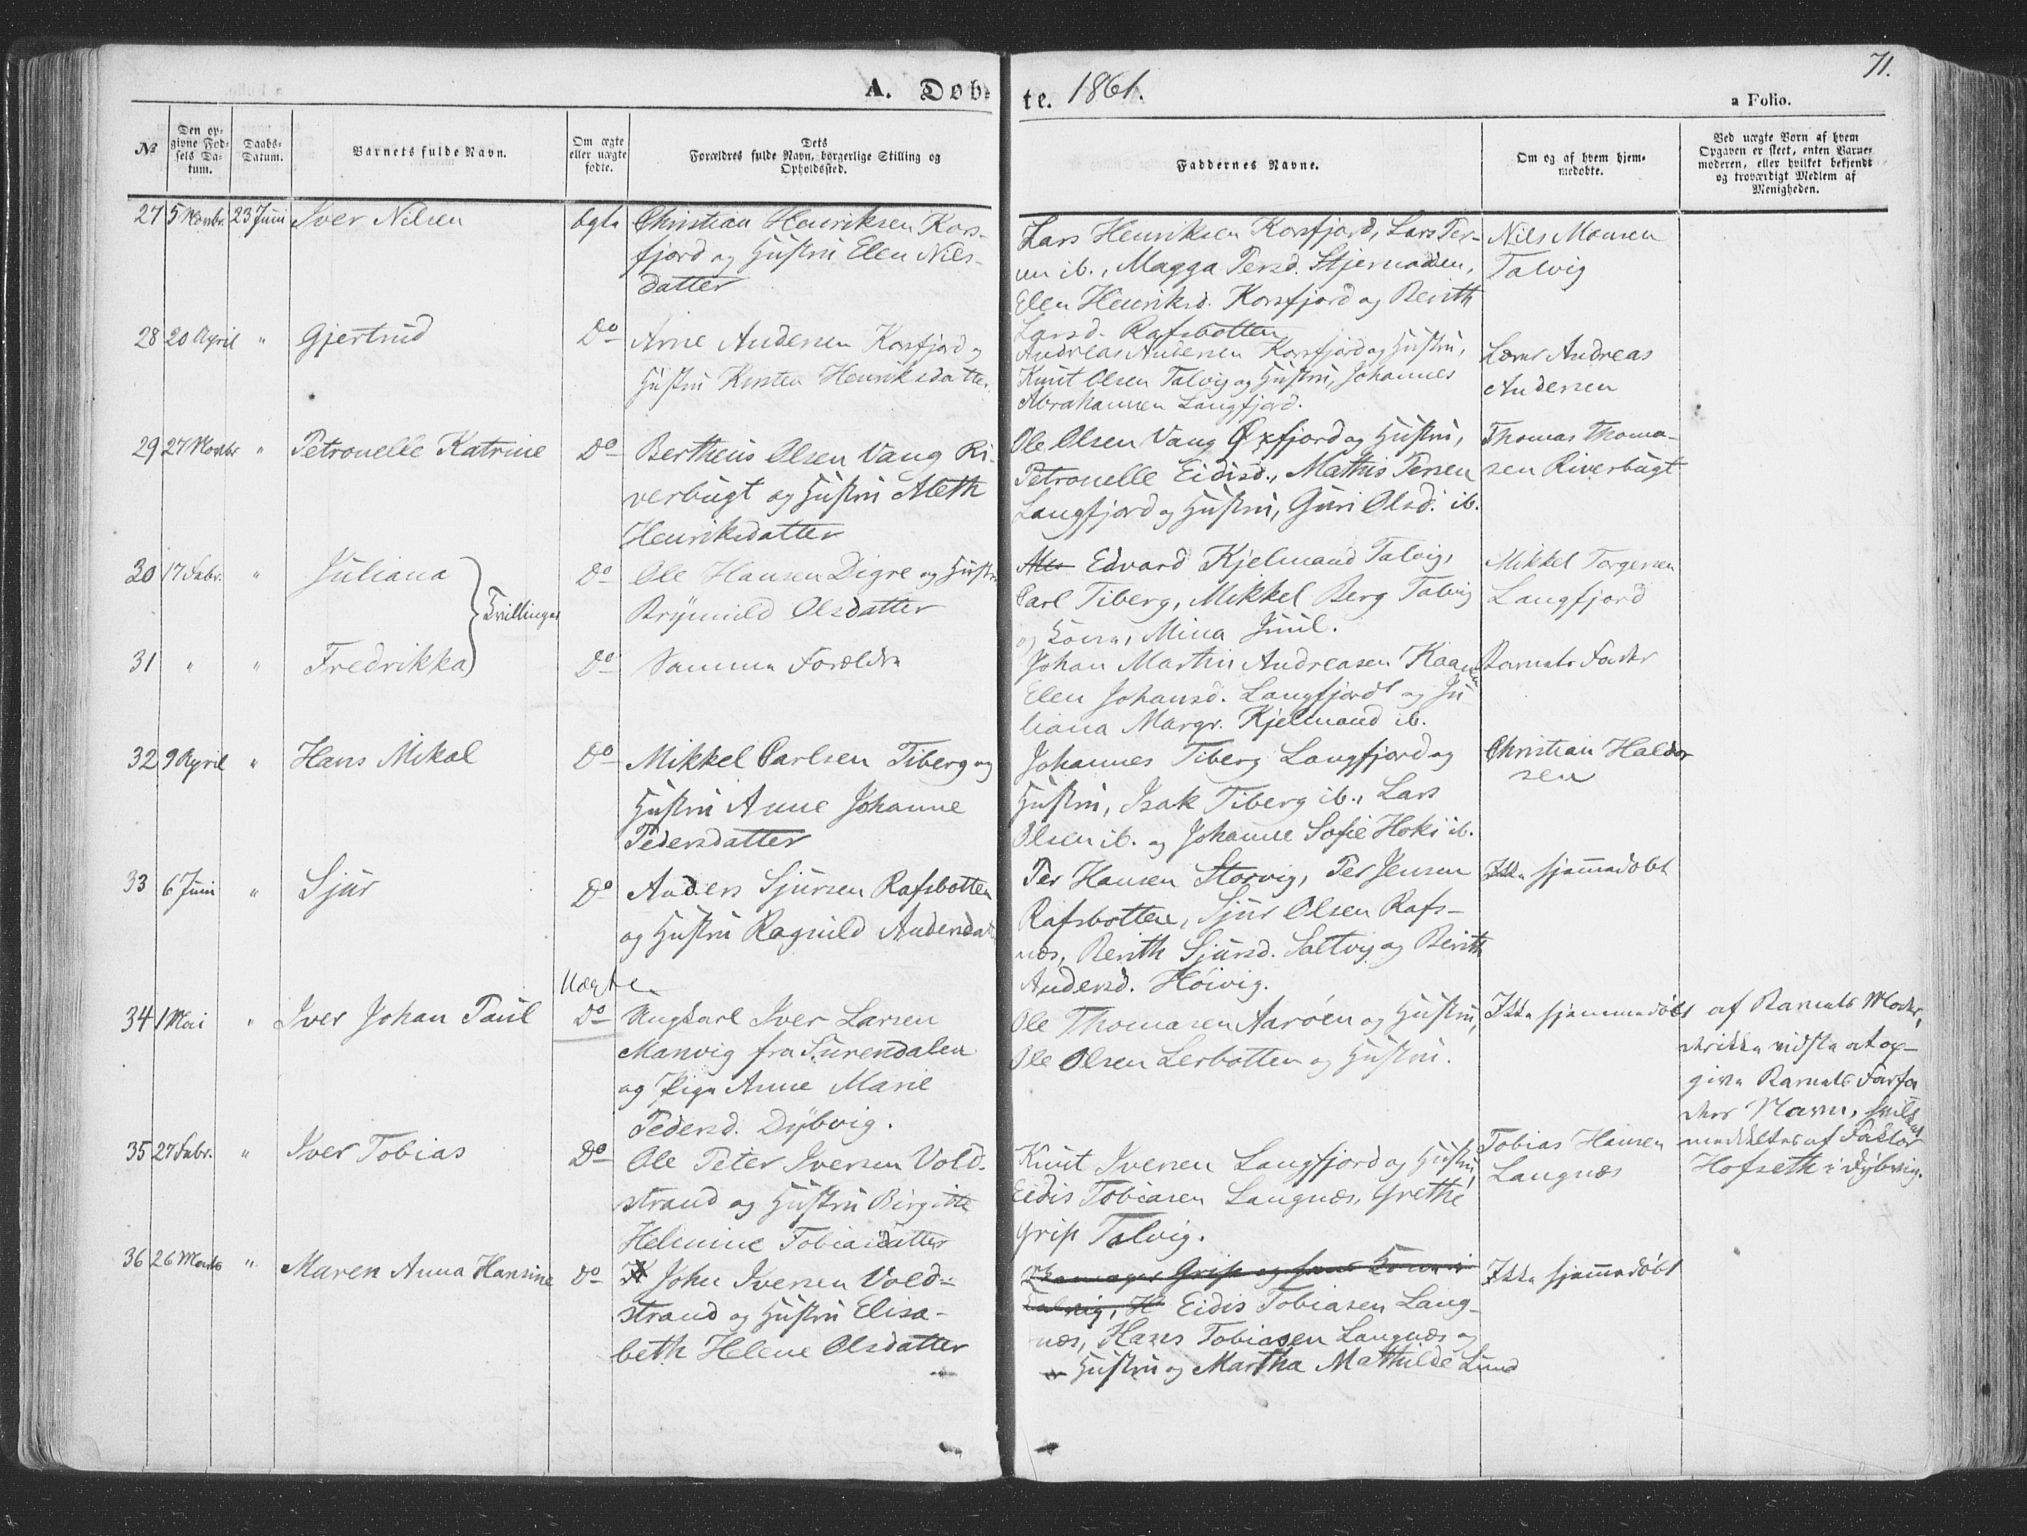 71.
A. Døbte. 1861.
a Folio.
№
Den opgivne Fødsels Datum.
Daabs-Datum.
Barnets fulde Navn.
Om ægte eller uægte fødte.
Dets Forældres fulde Navn, borgerlige Stilling og Opholdssted.
Faddernes Navne.
Om og af hvem hjemmedøbte.
Ved uægte Børn af hvem Opgaven er skeet, enten Barnemoderen, eller hvilket bekjendt og troværdigt Medlem af Menigheden.
27 5 Novbr. 23 Juni Iver Nilsen ægte
Christian Henriksen Kors-
fjord og Hustru Elen Nils-
datter
Lars Henriksen Korsfjord, Lars Per-
sen ib., Magga Persd. Stjernodden,
Elen Henriksd. Korsfjord og Berith
Larsd. Rafsbotten
Nils Monsen
Talvig
28 20 April " Gjertrud Do
Arne Andersen Korsfjord og
Hustru Kirsten Henriksdatter
Andreas Andersen Korsfjord og Hustru,
Knut Olsen Talvig og Hustru, Johannes
Abrahamsen Langfjord.
Lærer Andreas
Andersen
29 27 Novbr " Petronelle Katrine Do
Bertheus Olsen Vang Ri-
verbugt og Hustru Aleth
Henriksdatter
Ole Olsen Vang Øxfjord og Hustru,
Petronelle Eidisd., Mathis Persen
Langfjord og Hustru, Guri Olsd. ib.
Thomas Thoma-
sen Riverbugt
30 17 Febr. " Juliana Do
Tvillinger
Ole Hansen Digre og Hustru
Brynnild Olsdatter
Edvard Kjelmand Talvig,
Carl Tiberg, Mikkel Berg Talvig
og Kone, Mina Juul.
Mikkel Torgersen
Langfjord
31 " " Fredrikka Do
Samme Forældre
Johan Martin Andreasen
Elen Johansd. Langfjord og Ju
liana Margr. Kjelmand ib.
Barnets Fader
32 9 April " Hans Mikal Do
Mikkel Carlsen Tiberg og
Hustru Anne Johanne
Pedersdatter
Johannes Tiberg Langfjord og
Hustru, Isak Tiberg ib., Lars
Olsen ib. og Johanne Sofie Hoki ib.
Christian Haldor
sen
33 6 Juni " Sjur Do
Anders Sjursen Rafsbotten
og Hustru Ragnild Andersdat
Per Hansen Storvig, Per Jensen
Rafsbotten, Sjur Olsen Rafs-
næs, Berith Sjursd. Saltvig og Berith
Andersd. Høivig.
Ikke hjemmedøbt
34 1 Mai " Iver Johan Paul Uægte Do
Ungkarl Iver Larsen
Manvig fra Surendalen
og Pige Anne Marie
Pedersd. Dybvig.
Ole Thomasen Aarøen og Hustru,
Ole Olsen Lerbotten og Hustru.
Ikke hjemmedøbt
af Barnets Moder,
der ikke vidste at op-
give Barnets Farfa
ders Navn, hvilket
meddeltes af Faktor
Hofseth i Dybvig.
35 27 Febr. " Iver Tobias Do
Ole Peter Iversen Vold-
strand og Hustru Birgitte
Helmine Tobiasdatter
Knut Iversen Langfjord og Hustru,
Eidis Tobiasen Langnæs, Grethe
Grip Talvig.
Tobias Hansen
Langnæs
36 26 Marts " Maren Anna Hansine Do
John Iversen Vold-
strand og Hustru Elisa-
beth Helene Olsdatter
Grip og hans Kone i
Talvig, H Eidis Tobiasen Lang-
næs, Hans Tobiasen Langnæs og
Hustru og Martha Mathilde Lund
Ikke hjemmedøbt